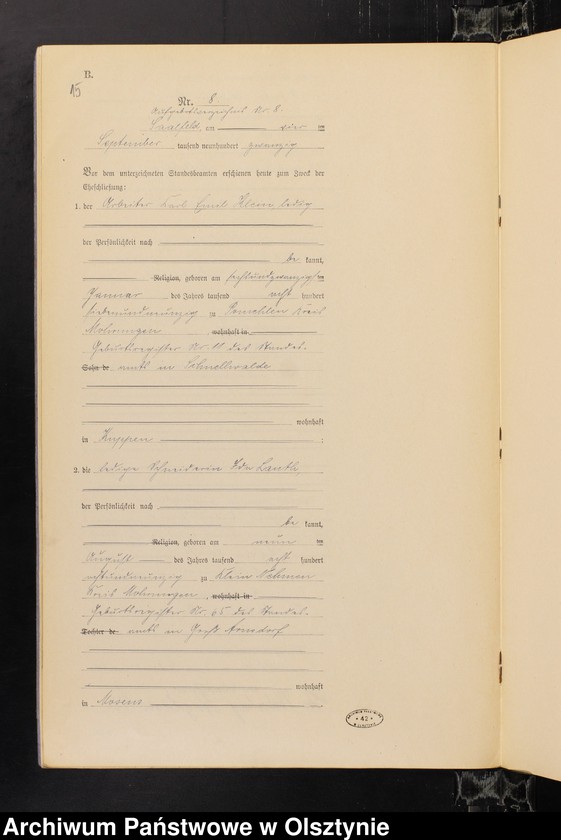 B.
15
Nr. 8
Aufgebotsverzeichnis Nr. 8.
Saalfeld, am vier ten
September tausend neunhundert zwanzig
Vor dem unterzeichneten Standesbeamten erschienen heute zum Zweck der
Eheschließung:
1. der Arbeiter Karl Emil Klein ledig
der Persönlichkeit nach
be kannt,
Religion, geboren am sechsundzwanzigsten
Januar des Jahres tausend acht hundert
siebenundneunzig zu Kreis
Mohrungen wohnhaft in
Geburtsregister Nr. 11 des Standes-
Sohn de amts in Schnellwalde
wohnhaft
in Kuppen :
2. die ledige Schneiderin
der Persönlichkeit nach
be kannt,
Religion, geboren am neun ten
August des Jahres tausend acht hundert
achtundneunzig zu Klein
Kreis Mohrungen, wohnhaft in
Geburtsregister Nr. 65 des Standes-
Tochter de amts in Groß Arnsdorf
wohnhaft
in Mosens
42
Archiwum Państwowe w Olsztynie